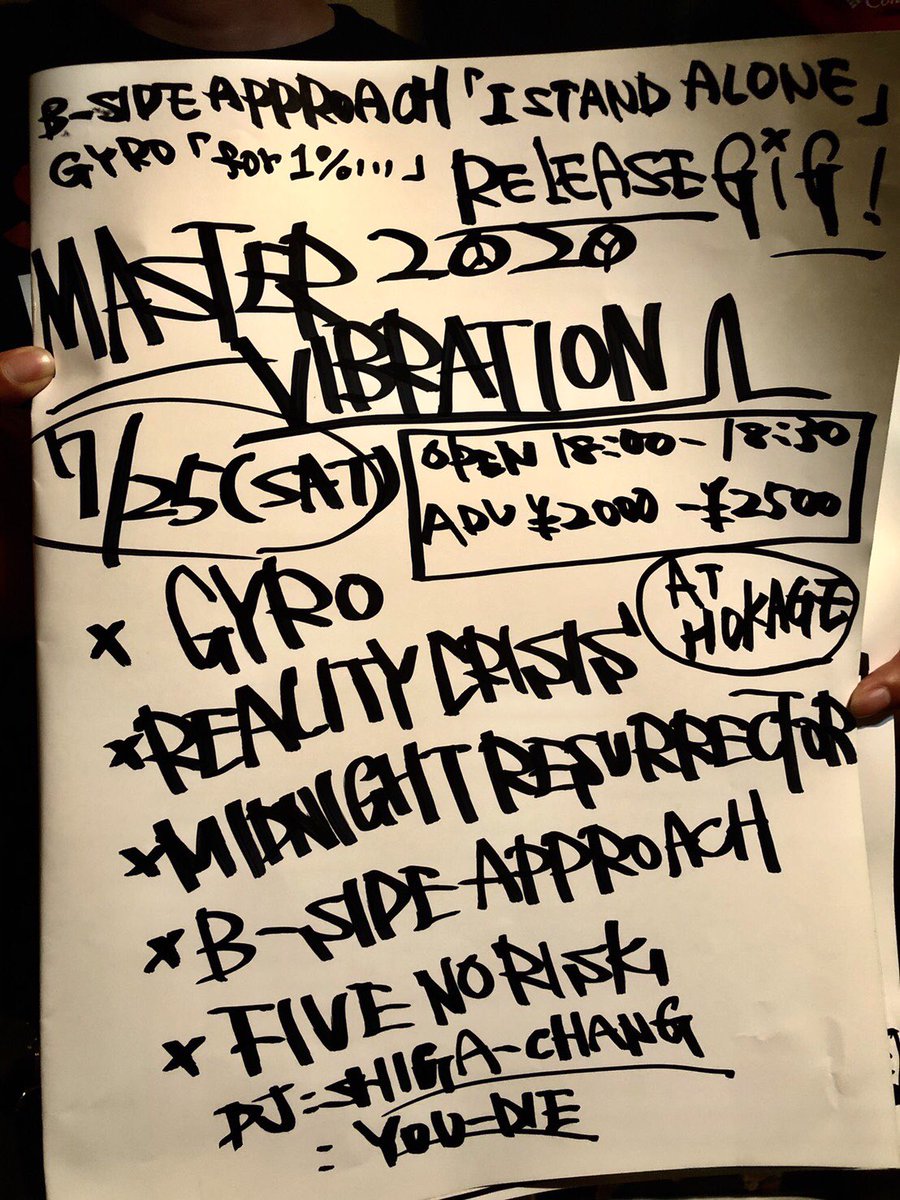 B-SIDE APPROACH「I STAND ALONE」
GYRO「for 1%...」 RELEASE GiG!
MASTER 2020
VIBRATION
7/25(SAT)
OPEN 18:00-18:30
ADV ¥2000-¥2500
AT
HOKAGE
× GYRO
× REALITY CRISIS
× MIDNIGHT RESURRECTOR
× B-SIDE APPROACH
× FIVE NO RISK
DJ=SHIGA-CHANG
=YOU-DIE